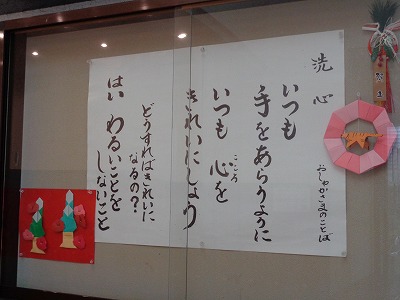 洗心
おしゃかさまのことば
いつも
手をあらうように
いつも 心を
こころ
きれいにしよう
どうすればきれいに
なるの？
はい わるいことを
しないこと